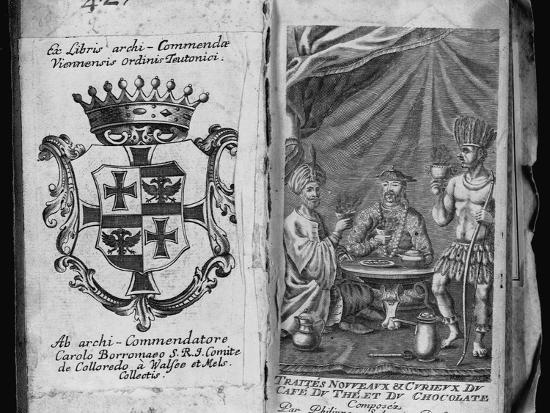 Ex Libris archi-Commendæ
Viennensis Ordinis Teutonici.
Ab archi-Commendatore
Carolo Borromaeo S.R.I. Comite
de Colloredo à Walsee et Mels
Collectis.
TRAITES NOUVEAUX & CURIEUX DU
CAFÉ DU THÉ ET DU CHOCOLATE
Composéz
Par